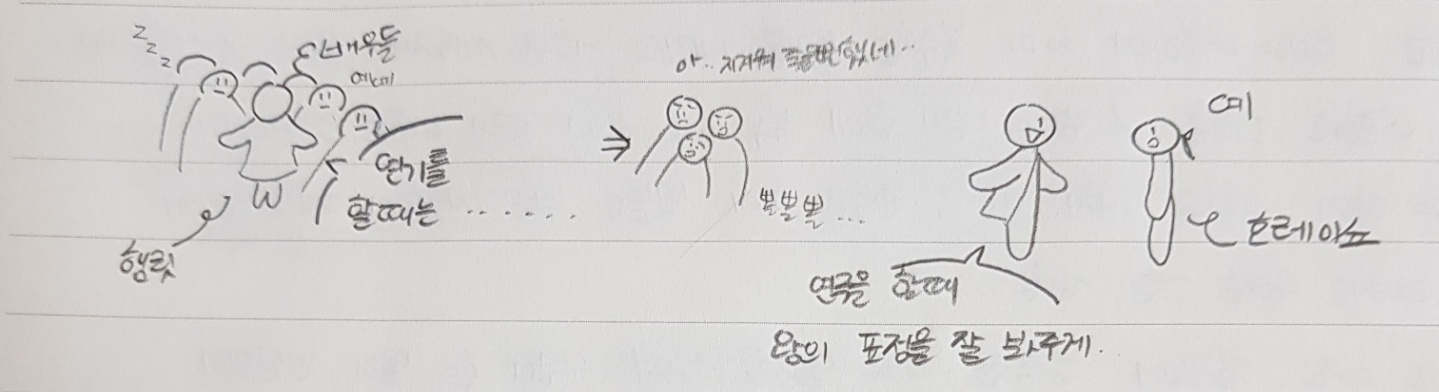 z z z
배우들
예예
연기를
할때는 ......
햄릿
⇒
아.. 지겨워 죽을뻔했네..
뽈뽈뽈...
예
호레이쇼
연극을 할때
왕의 표정을 잘 봐주게.